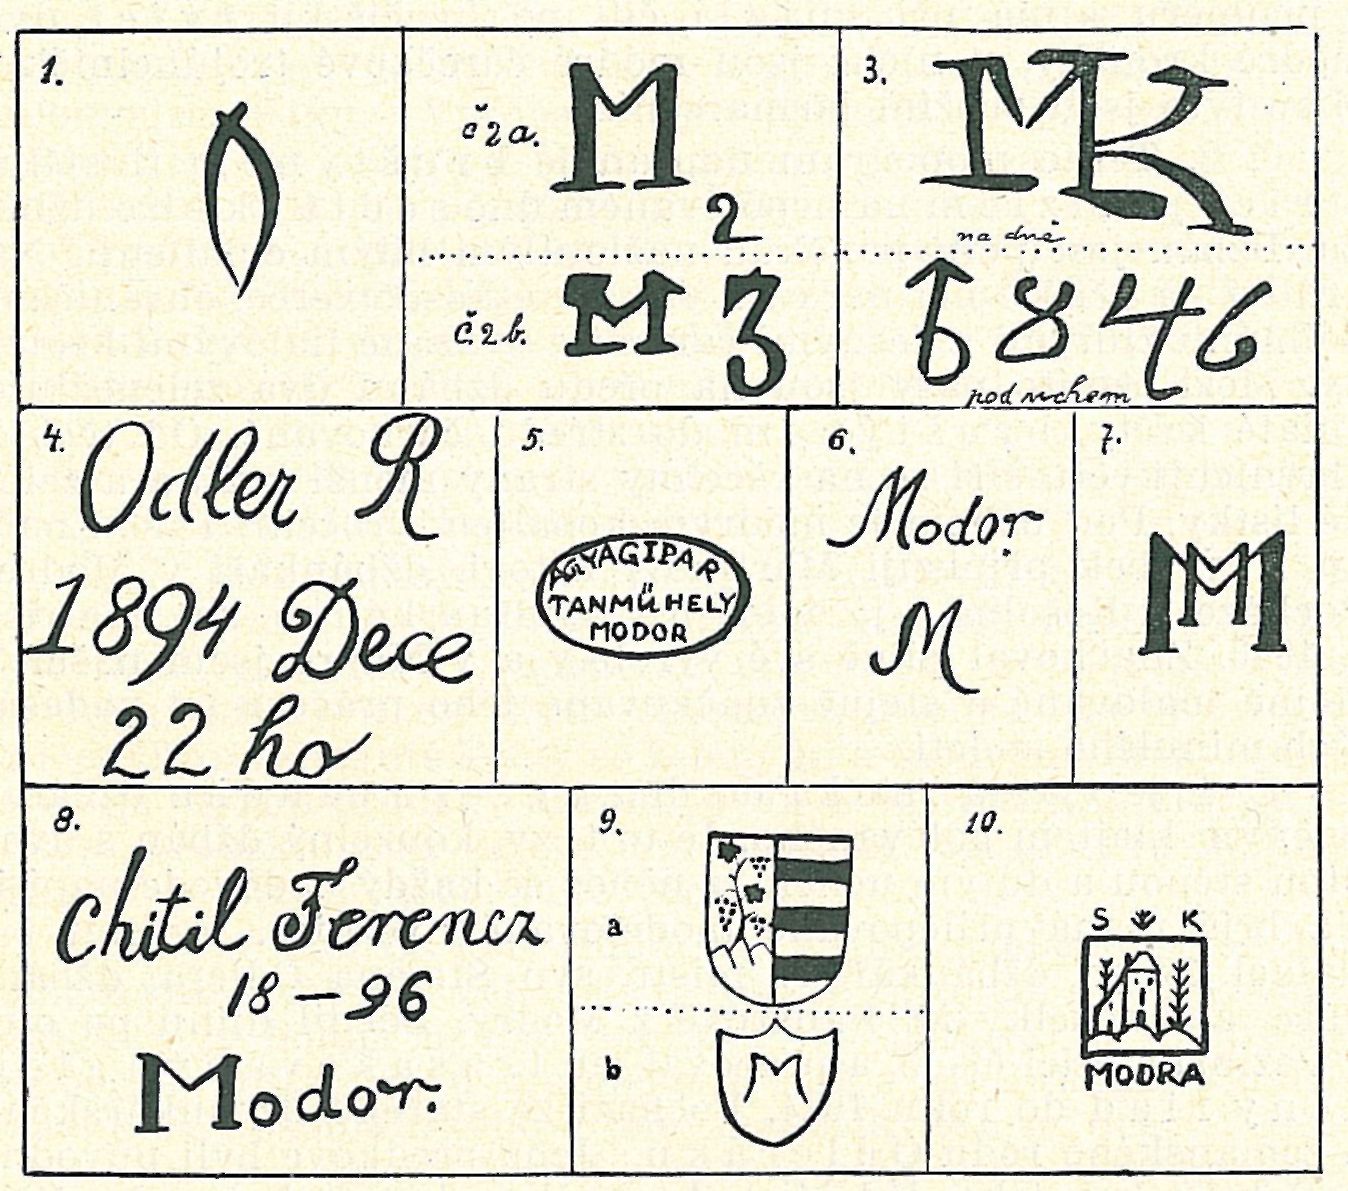 1.
č 2 a.
M
2
č. 2 b.
M 3
3.
MK
na dně
6846
pod uchem
4.
Odler R
1894 Dece
22 ho
5.
AGYAGIPAR
TANMŰHELY
MODOR
6.
Modor
M
7.
MM
8.
Chitil Ferencz
18 – 96
Modor.
9.
a
b
M
10.
S K
MODRA